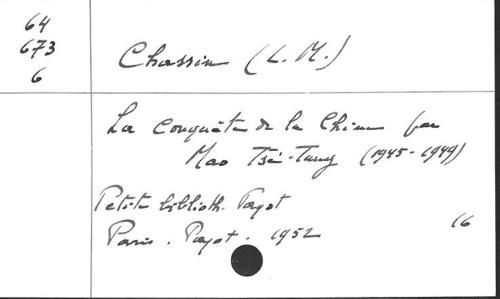 64
673
6
Chassin (L. M.)
La Conquête de la Chine par
Mao Tsé-Tung (1945-1949)
Petite biblioth. Payot
Paris. Payot. 1952
16